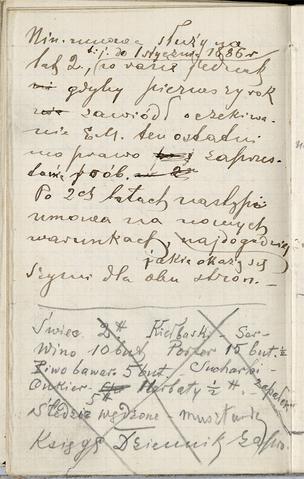 Nin. umowa służy na
t. j. do 1 stycznia 1886 r
lat 2, po razie jednak
gdyby pierwszy rok
zawiódł oczekiwa-
nie E. M. ten ostatni
ma prawo zaprze-
stania prób.
Po 2ch latach nastąpi
umowa na nowych
warunkach, najdogodniej
jakie okażą się
szymi dla obu stron.—
Świec 2 # Kiełbaski - Ser-
Wino 10 but Porter 15 but. ½
Piwo bawar. 5 but Sucharki -
Cukier Herbaty ½ #. zapałek
5 #
Śledzie wędzone musztarda
Księga Dziennik Zapas.